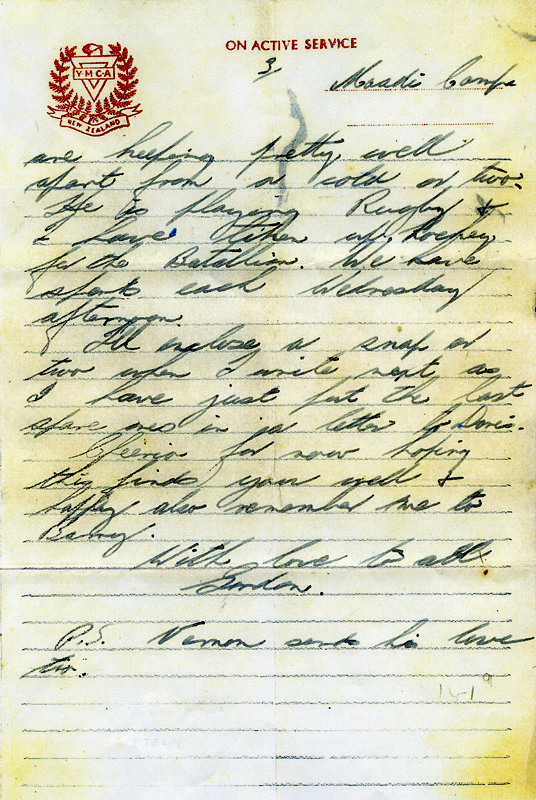 ON ACTIVE SERVICE
Y.M.C.A
NEW ZEALAND
3/
Maadi Camp
are keeping pretty well
apart from a cold or two.
He is playing Rugby &
I have taken up hockey
for the Batallion. We have
sports each Wednesday
afternoon.
I'll enclose a snap or
two when I write next as
I have just put the last
spare ones in a letter to Doris.
Cheerio for now hoping
this finds you well &
happy also remember me to
Barney.
With love to all
Gordon.
P.S. Vernon sends his love
too.